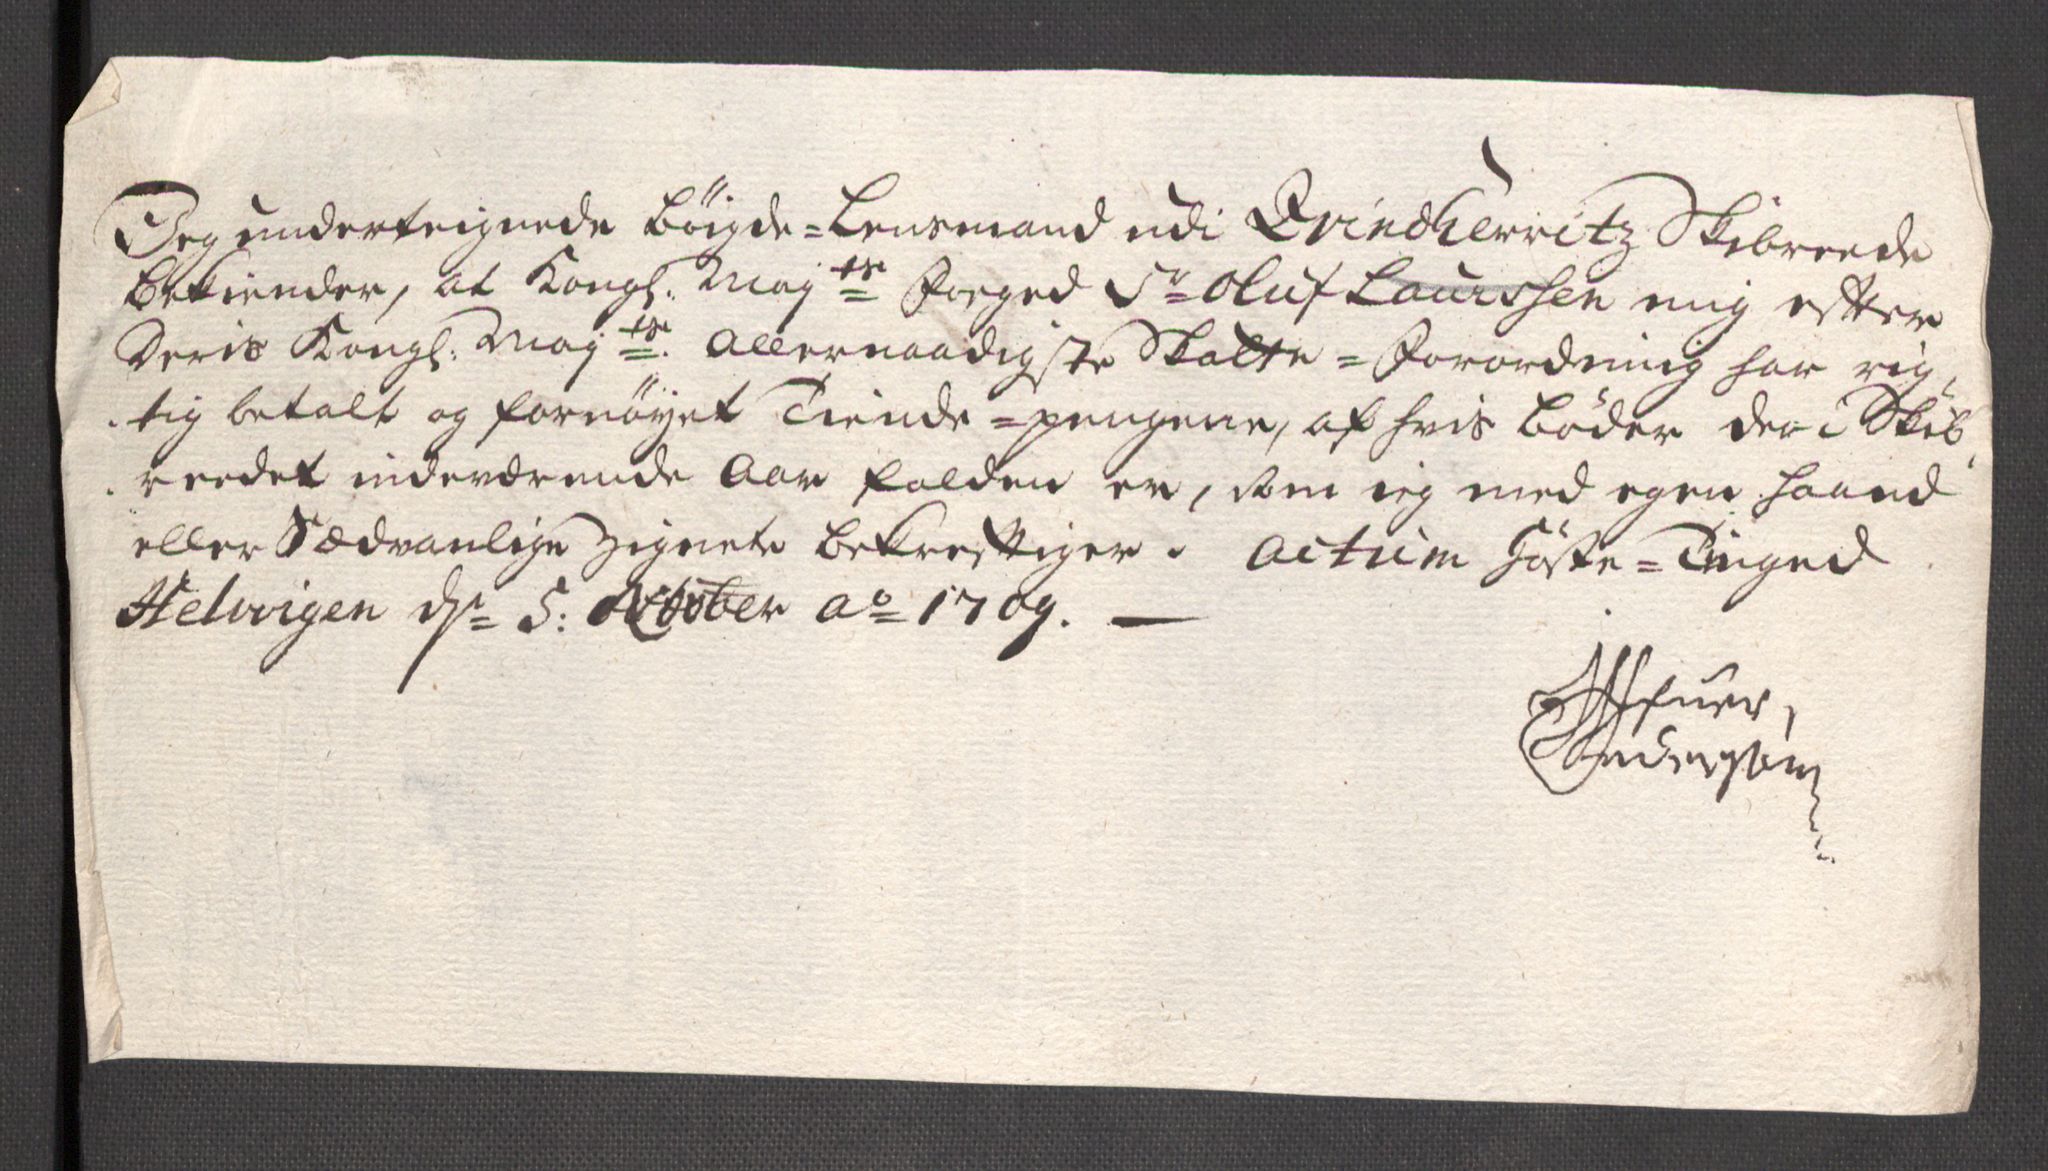 Jeg underteignede Bøigde-Lensmand udi Qvindherritz Skibreede
bekiender, at Kongl: May:ts Foeged Sr Oluf Laurssen mig efter
Deris Kongl: May:ts Allernaadigste Skatte-Forordning har rig,
tig betalt og fornøyet Tiende-pengene, af hvis bøder der i Skib,
reedet indeværende Aar falden er, som ieg med egen haand
eller Sædvanlige Zignete bekreftiger. Actum Høste-Tinged
Helvigen dn 5: October Ao 1709.
Andersøn